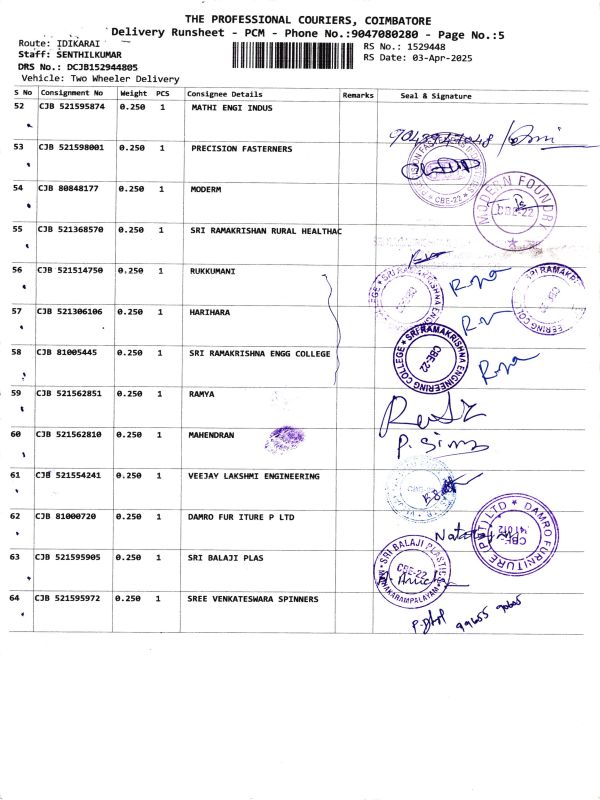 THE PROFESSIONAL COURIERS, COIMBATORE
Delivery Runsheet - PCM - Phone No.:9047080280 - Page No.:5
Route: IDIKARAI
RS No.: 1529448
Staff: SENTHILKUMAR
RS Date: 03-Apr-2025
DRS No.: DCJB152944805
Vehicle: Two Wheeler Delivery
S No Consignment No Weight PCS Consignee Details Remarks Seal & Signature
52 CJB 521595874 0.250 1 MATHI ENGI INDUS
53 CJB 521598001 0.250 1 PRECISION FASTERNERS
CBE-22
54 CJB 80848177 0.250 1 MODERM
MODERN FOUNDRY
CBE-22
55 CJB 521368570 0.250 1 SRI RAMAKRISHAN RURAL HEALTHAC
56 CJB 521514750 0.250 1 RUKKUMANI
57 CJB 521306106 0.250 1 HARIHARA
58 CJB 81005445 0.250 1 SRI RAMAKRISHNA ENGG COLLEGE
SRI RAMAKRISHNA ENGINEERING COLLEGE
CBE-22
59 CJB 521562851 0.250 1 RAMYA
60 CJB 521562810 0.250 1 MAHENDRAN
61 CJB 521554241 0.250 1 VEEJAY LAKSHMI ENGINEERING
62 CJB 81000720 0.250 1 DAMRO FUR ITURE P LTD
DAMRO FURNITURE (PVT) LTD
63 CJB 521595905 0.250 1 SRI BALAJI PLAS
SRI BALAJI PLASTIC
CBE-22
64 CJB 521595972 0.250 1 SREE VENKATESWARA SPINNERS